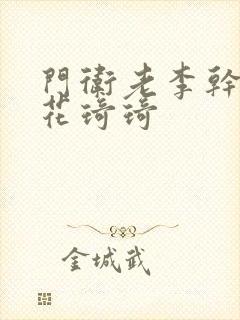 門衛老李幹
花琦琦
金城武